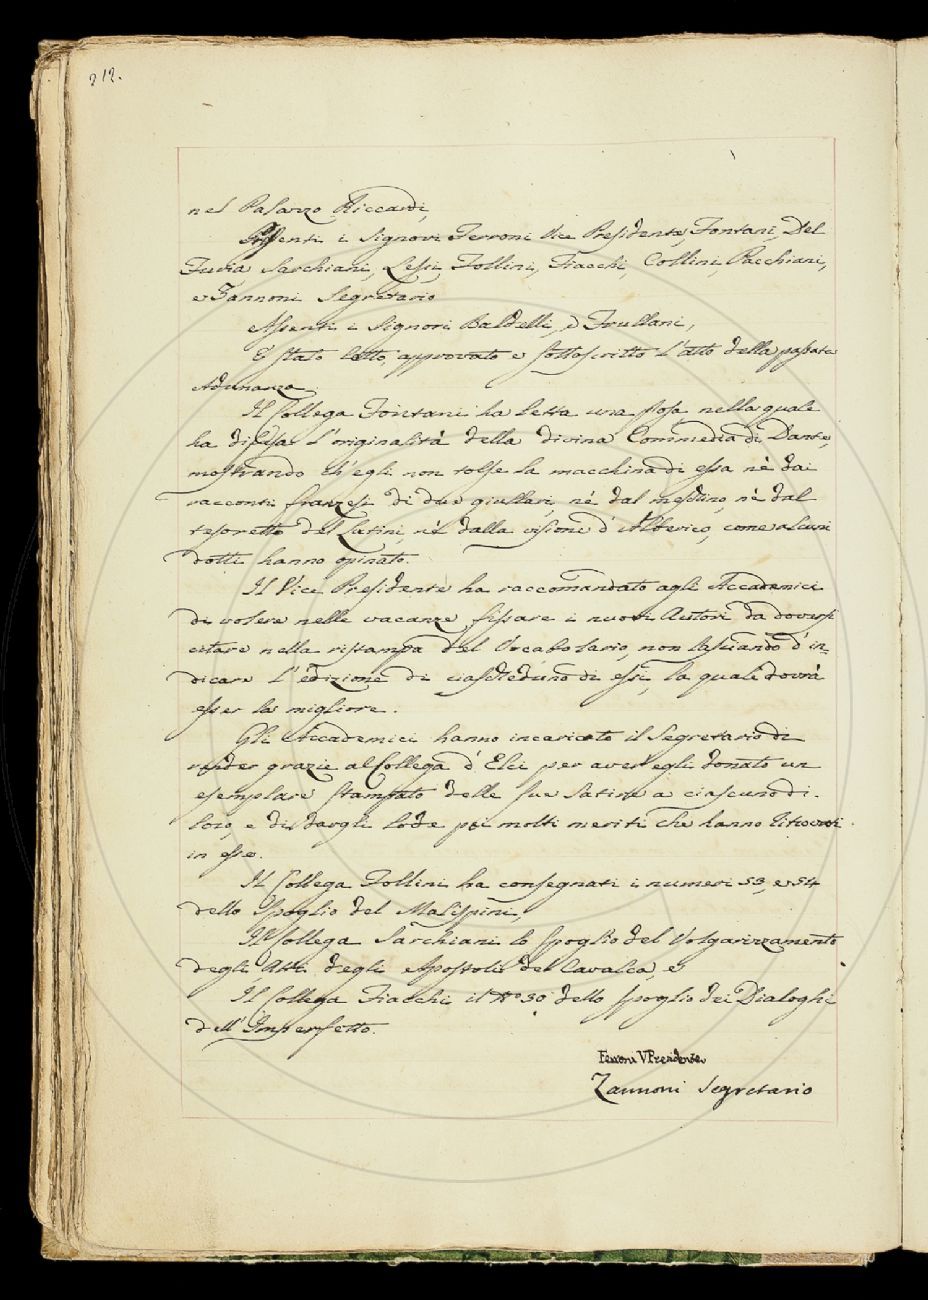 212.
nel Palazzo Riccardi,
Presenti i Signori Ferroni Vice Presidente, Fontani, Del
Furia Sarchiani, Lessi, Follini, Fiacchi, Collini, Pacchiani,
e Zannoni Segretario
Assenti i Signori Baldelli, e Frullani,
E' stato letto, approvato e sottoscritto l'atto della passata
Adunanza.
Il Collega Fontani ha letta una prosa nella quale
ha difesa l'originalità della divina Commedia di Dante,
mostrando ch'egli non tolse la macchina di essa nè dai
racconti franzesi di due giullari, nè dal meschino, nè dal
tesoretto del Latini, nè dalla visione d'Alberico, come alcuni
dotti hanno opinato.
Il Vice Presidente ha raccomandato agli Accademici
di volere nelle vacanze fissare i nuovi Autori da doversi
citare nella ristampa del Vocabolario, non lasciando d'in=
dicare l'edizione di ciascheduno di essi, la quale dovrà
esser la migliore.
Gli Accademici hanno incaricato il Segretario di
render grazie al Collega d'Elci per aver egli donato un
esemplare stampato delle sue Satire a ciascuno di
loro, e di dargli lode pei molti meriti che hanno ritrovati
in esse.
Il Collega Follini ha consegnati i numeri 53, e 54
dello Spoglio del Malispini,
Il Collega Sarchiani lo spoglio del Volgarizzamento
degli Atti degli Apostoli del Cavalca, e
Il Collega Fiacchi il N° 30 dello spoglio dei Dialoghi
dell'Imperfetto.
Ferroni V Presidente
Zannoni Segretario